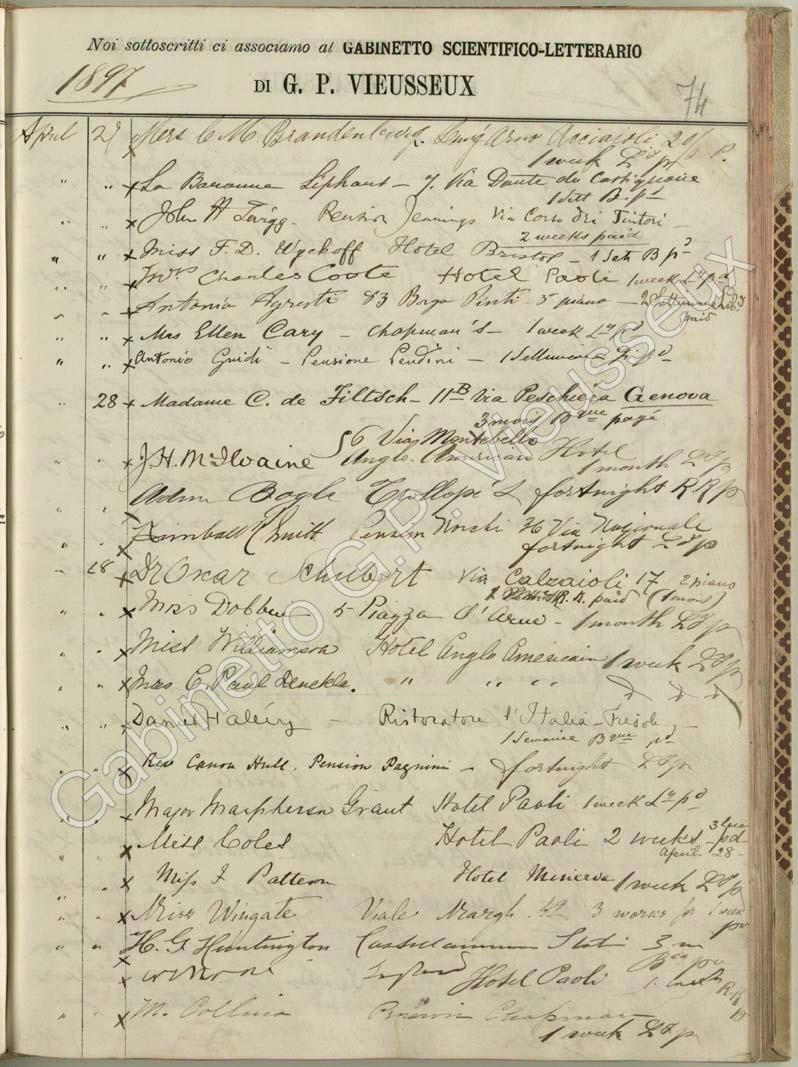 Noi sottoscritti ci associamo al GABINETTO SCIENTIFICO-LETTERARIO
1897
DI G. P. VIEUSSEUX
74
April 27 Mrs C. M. Brandenburg. Lung'Arno Acciajoli
1 week Lry pd
" " x La Baronne Liphart - 7. Via Dante da Castiglione
1 Sett B. pd
" " x John H Twigg. Pension Jennings Via Corso dei Tintori -
2 weeks paid
" " x Miss F. D. Wyckoff Hotel Bristol - 1 Sett B pd
x Mrs Charles Coote Hotel Paoli 1 week Lry pd
x Antonio Agresti 83 Borgo Pinti 3º piano - 2 Settimane
paid
" " x Mrs Ellen Cary - Chapman's - 1 week Lry pd
" " x Antonio Guidi - Pensione Pendini - 1 Settimana pd
" 28 x Madame C. de Filtsch - 11B Via Peschiera Genova
3 mois Bque payé
56 Via Montebello
x J. H. McIlvaine Anglo-American Hotel
1 month Lry p
Bogle Trollope's fortnight R R p
x Kimball Via Nazionale
fortnight Lry p
28 x Dr Oscar Schubert via Calzaioli 17 2 piano
R. R. paid (1 mois)
" " x Miss 5 Piazza d'Arno - 1 month Lry p
" " x Miss Williamson Hotel Anglo Americain 1 week Lry p
" " x Mrs C. Paul Denckla. " " "
" " x Daniel Halévy - Ristoratore d'Italia - Fiesole -
1 Semaine Bque pd
" " x Rev Canon Hull. Pension Pagnini - fortnight Lry p
" " x Major Macpherson Grant Hotel Paoli 1 week Lry pd
" " x Miss Coles Hotel Paoli 2 weeks - pd
April 28 -
" " x Miss F Patterson Hotel Minerva 1 week Lry p
" " x Miss Wingate Viale Margh. 42 3 works for 1 week
" " x H. G. Huntington Castellammare Stabia 3 m
x England Hotel Paoli 1
x M. Collins Pension Chapman
1 week Lry p
Gabinetto G.P. Vieusseux